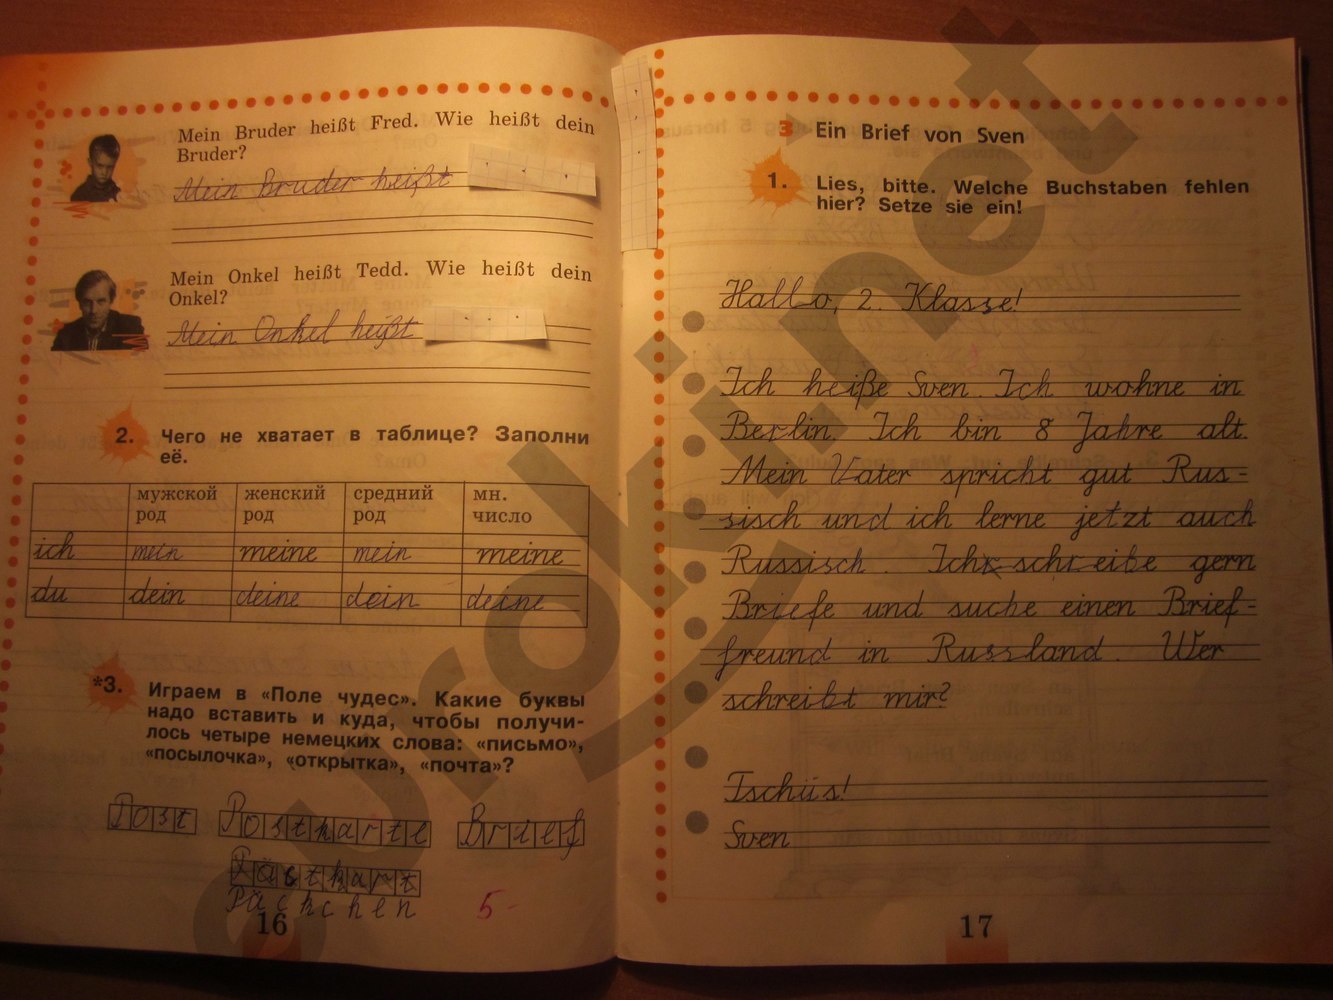 Mein Bruder heißt Fred. Wie heißt dein
Bruder?
Mein Bruder heißt
Mein Onkel heißt Tedd. Wie heißt dein
Onkel?
Mein Onkel heißt
2. Чего не хватает в таблице? Заполни
её.
мужской род женский род средний род мн. число
ich mein meine mein meine
du dein deine dein deine
*3. Играем в «Поле чудес». Какие буквы
надо вставить и куда, чтобы получи-
лось четыре немецких слова: «письмо»,
«посылочка», «открытка», «почта»?
Post Postkarte Brief
Päckchen
5-
16
3 Ein Brief von Sven
1. Lies, bitte. Welche Buchstaben fehlen
hier? Setze sie ein!
Hallo, 2. Klasse!
Ich heiße Sven. Ich wohne in
Berlin. Ich bin 8 Jahre alt.
Mein Vater spricht gut Rus-
sisch und ich lerne jetzt auch
Russisch. Ich schreibe gern
Briefe und suche einen Brief-
freund in Russland. Wer
schreibt mir?
Tschüs!
Sven
17
eurokinet